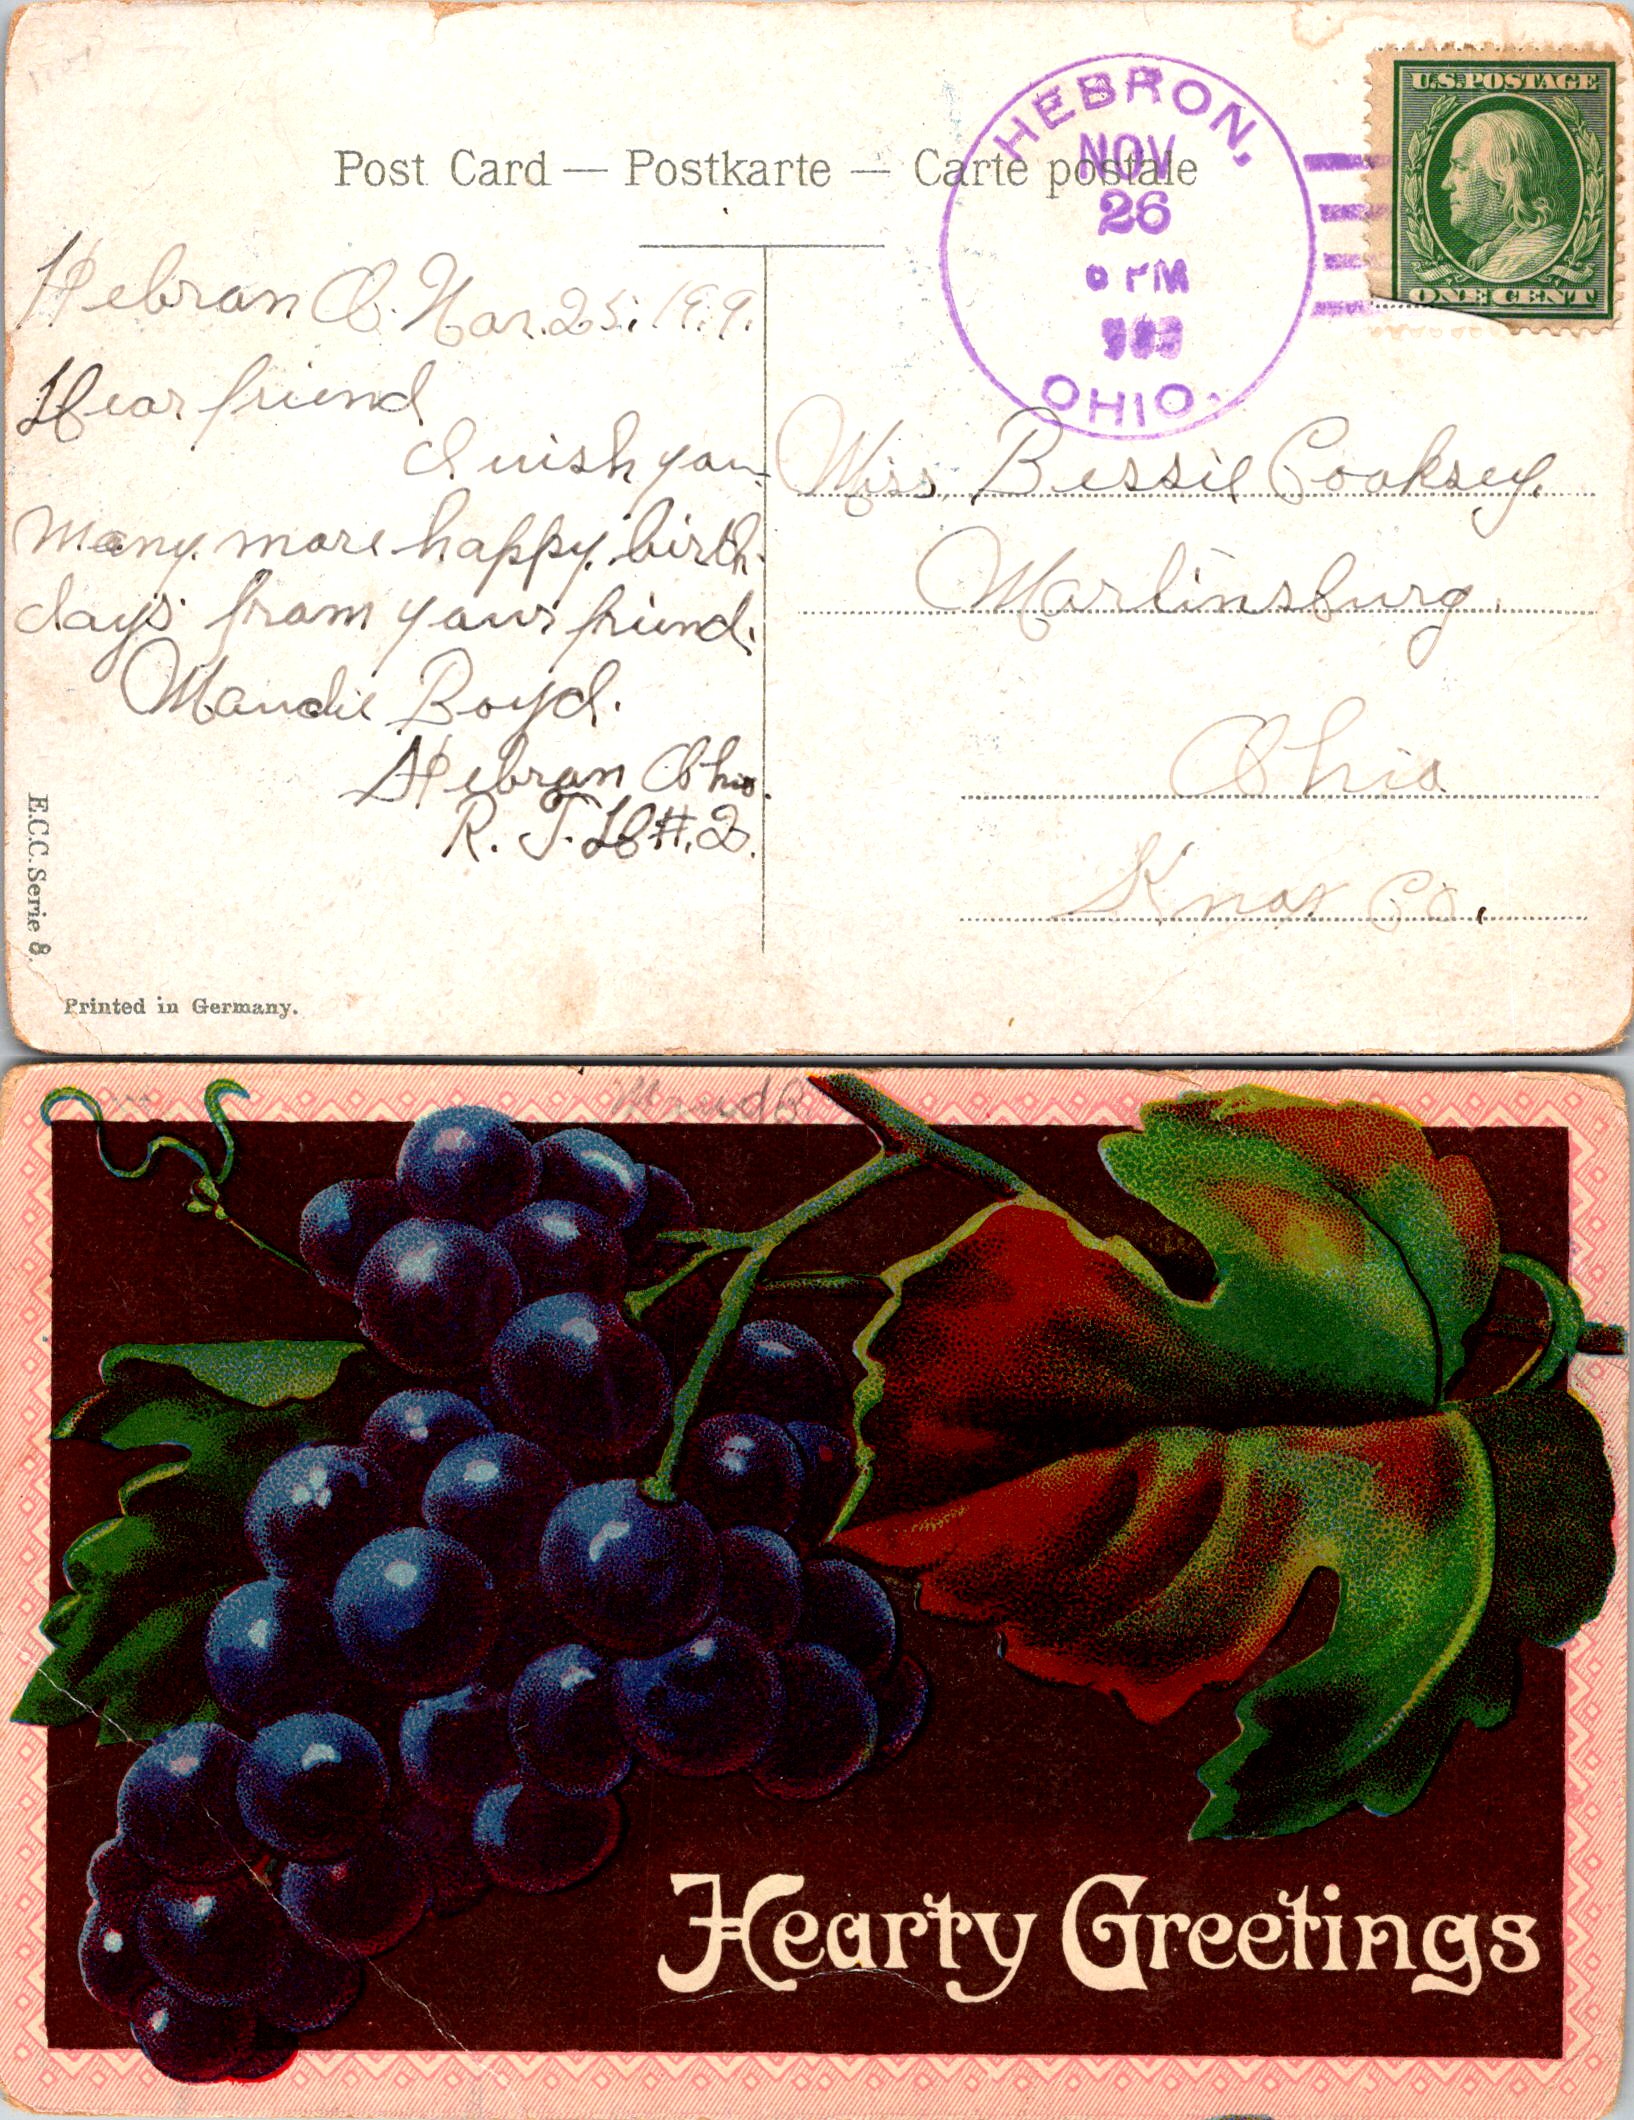 Post Card — Postkarte — Carte postale
HEBRON,
NOV
26
PM
OHIO.
U.S. POSTAGE
ONE CENT
Hebron O. Nov. 25, 1909.
Dear friend
I wish you
many more happy birth-
days from your friend.
Maudie Boyd.
Hebron Ohio.
R. F. D #. 2.
Miss Bessie Cooksey.
Martinsburg.
Ohio
Knox Co.
E.C.C. Serie 8.
Printed in Germany.
Maud B.
Hearty Greetings